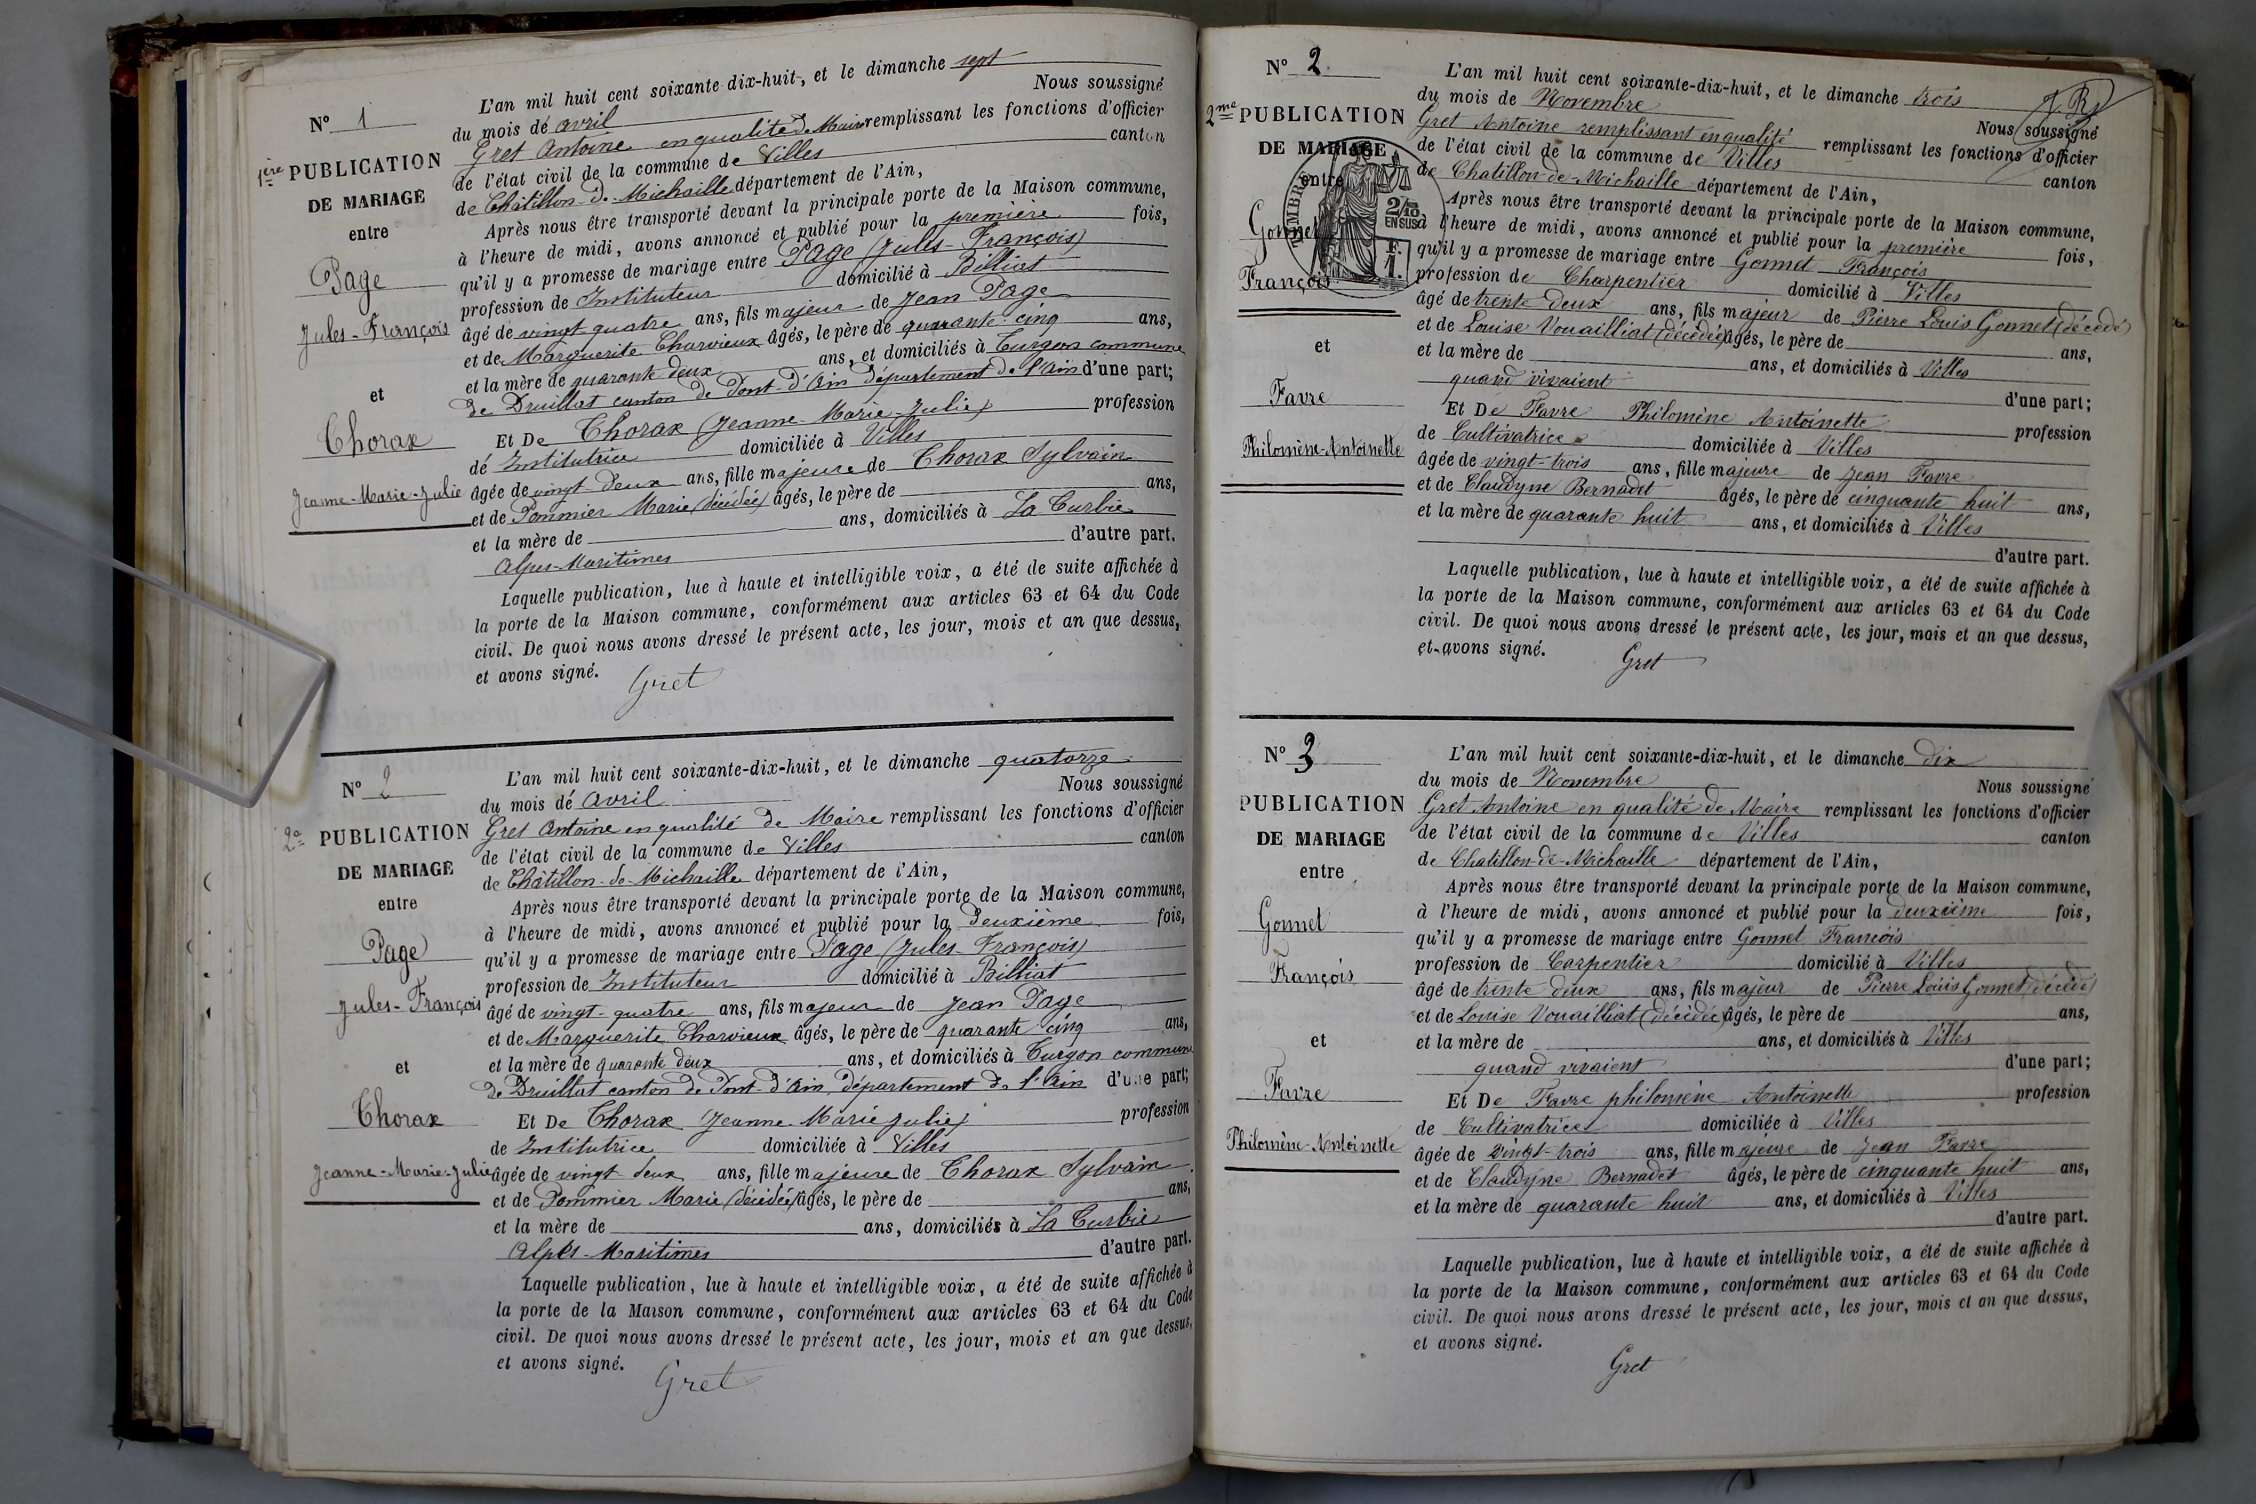 N° 1
1ère PUBLICATION
DE MARIAGE
entre
Page
Jules-François
et
Chorax
Jeanne-Marie-Julie
L'an mil huit cent soixante-dix-huit, et le dimanche sept
du mois de avril Nous soussigné
Gret Antoine en qualité de Maire remplissant les fonctions d'officier
de l'état civil de la commune de Villes canton
de Châtillon-de-Michaille département de l'Ain,
Après nous être transporté devant la principale porte de la Maison commune,
à l'heure de midi, avons annoncé et publié pour la première fois,
qu'il y a promesse de mariage entre Page (Jules-François)
profession de Instituteur domicilié à Billiat
âgé de vingt quatre ans, fils majeur de Jean Page
et de Marguerite Charvieux âgés, le père de quarante-cinq ans,
et la mère de quarante deux ans, et domiciliés à Turgon commune
de Druillat canton de Pont-d'Ain département de l'Ain d'une part;
Et De Chorax (Jeanne-Marie-Julie) profession
dé Institutrice domiciliée à Villes
âgée de vingt-deux ans, fille majeure de Chorax Sylvain
et de Pommier Marie (décédée) âgés, le père de ans,
et la mère de ans, domiciliés à La Turbie
Alpes-Maritimes d'autre part.
Laquelle publication, lue à haute et intelligible voix, a été de suite affichée à
la porte de la Maison commune, conformément aux articles 63 et 64 du Code
civil. De quoi nous avons dressé le présent acte, les jour, mois et an que dessus,
et avons signé.
Gret
N° 2
2e PUBLICATION
DE MARIAGE
entre
Page
Jules-François
et
Chorax
Jeanne-Marie-Julie
L'an mil huit cent soixante-dix-huit, et le dimanche quatorze
du mois dé avril Nous soussigné
Gret Antoine en qualité de Maire remplissant les fonctions d'officier
de l'état civil de la commune de Villes canton
de Châtillon-de-Michaille département de l'Ain,
Après nous être transporté devant la principale porte de la Maison commune,
à l'heure de midi, avons annoncé et publié pour la deuxième fois,
qu'il y a promesse de mariage entre Page (Jules-François)
profession de Instituteur domicilié à Billiat
âgé de vingt-quatre ans, fils majeur de Jean Page
et de Marguerite Charvieux âgés, le père de quarante cinq ans,
et la mère de quarante deux ans, et domiciliés à Turgon commune
de Druillat canton de Pont-d'Ain, département de l'Ain d'une part;
Et De Chorax (Jeanne-Marie Julie) profession
de Institutrice domiciliée à Villes
âgée de vingt deux ans, fille majeure de Chorax Sylvain
et de Pommier Marie (décédée) âgés, le père de ans,
et la mère de ans, domiciliés à La Turbie
Alpes-Maritimes d'autre part.
Laquelle publication, lue à haute et intelligible voix, a été de suite affichée à
la porte de la Maison commune, conformément aux articles 63 et 64 du Code
civil. De quoi nous avons dressé le présent acte, les jour, mois et an que dessus,
et avons signé.
Gret
N° 2
2me PUBLICATION
DE MARIAGE
entre
Gonnet
François
et
Favre
Philomène-Antoinette
TIMBRE
2/10
EN SUS
F.
1.
L'an mil huit cent soixante-dix-huit, et le dimanche trois
du mois de Novembre Nous soussigné
Gret Antoine remplissant en qualité remplissant les fonctions d'officier
de l'état civil de la commune de Villes canton
de Chatillon-de-Michaille département de l'Ain,
Après nous être transporté devant la principale porte de la Maison commune,
à l'heure de midi, avons annoncé et publié pour la première fois,
qu'il y a promesse de mariage entre Gonnet François
profession de Charpentier domicilié à Villes
âgé de trente deux ans, fils majeur de Pierre Louis Gonnet (décédé)
et de Louise Vouailliat (décédée) âgés, le père de ans,
et la mère de ans, et domiciliés à Villes
quand vivaient d'une part;
Et De Favre Philomène Antoinette profession
de Cultivatrice domiciliée à Villes
âgée de vingt-trois ans, fille majeure de Jean Favre
et de Claudyne Bernadet âgés, le père de cinquante huit ans,
et la mère de quarante huit ans, et domiciliés à Villes
d'autre part.
Laquelle publication, lue à haute et intelligible voix, a été de suite affichée à
la porte de la Maison commune, conformément aux articles 63 et 64 du Code
civil. De quoi nous avons dressé le présent acte, les jour, mois et an que dessus,
et avons signé.
Gret
N° 3
PUBLICATION
DE MARIAGE
entre
Gonnet
François
et
Favre
Philomène-Antoinette
L'an mil huit cent soixante-dix-huit, et le dimanche dix
du mois de Novembre Nous soussigné
Gret Antoine en qualité de Maire remplissant les fonctions d'officier
de l'état civil de la commune de Villes canton
de Chatillon-de-Michaille département de l'Ain,
Après nous être transporté devant la principale porte de la Maison commune,
à l'heure de midi, avons annoncé et publié pour la deuxième fois,
qu'il y a promesse de mariage entre Gonnet François
profession de Carpentier domicilié à Villes
âgé de trente deux ans, fils majeur de Pierre Louis Gonnet (décédé)
et de Louise Vouailliat (décédée) âgés, le père de ans,
et la mère de ans, et domiciliés à Villes
quand vivaient d'une part;
Et De Favre philomène Antoinette profession
de Cultivatrice domiciliée à Villes
âgée de vingt-trois ans, fille majeure de Jean Favre
et de Claudyne Bernadet âgés, le père de cinquante huit ans,
et la mère de quarante huit ans, et domiciliés à Villes
d'autre part.
Laquelle publication, lue à haute et intelligible voix, a été de suite affichée à
la porte de la Maison commune, conformément aux articles 63 et 64 du Code
civil. De quoi nous avons dressé le présent acte, les jour, mois et an que dessus,
et avons signé.
Gret